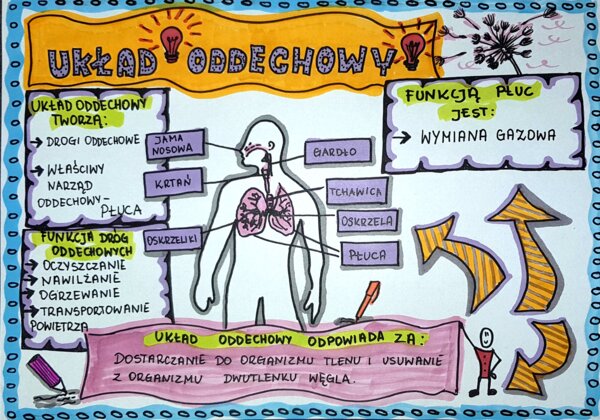 UKŁAD ODDECHOWY
UKŁAD ODDECHOWY
TWORZĄ:
→ DROGI ODDECHOWE
→ WŁAŚCIWY
NARZĄD
ODDECHOWY-
PŁUCA
FUNKCJĄ PŁUC
JEST:
→ WYMIANA GAZOWA
JAMA
NOSOWA
KRTAŃ
OSKRZELIKI
GARDŁO
TCHAWICA
OSKRZELA
PŁUCA
FUNKCJA DRÓG
ODDECHOWYCH
→ OCZYSZCZANIE
→ NAWILŻANIE
→ OGRZEWANIE
→ TRANSPORTOWANIE
POWIETRZA
UKŁAD ODDECHOWY ODPOWIADA ZA:
DOSTARCZANIE DO ORGANIZMU TLENU I USUWANIE
Z ORGANIZMU DWUTLENKU WĘGLA.